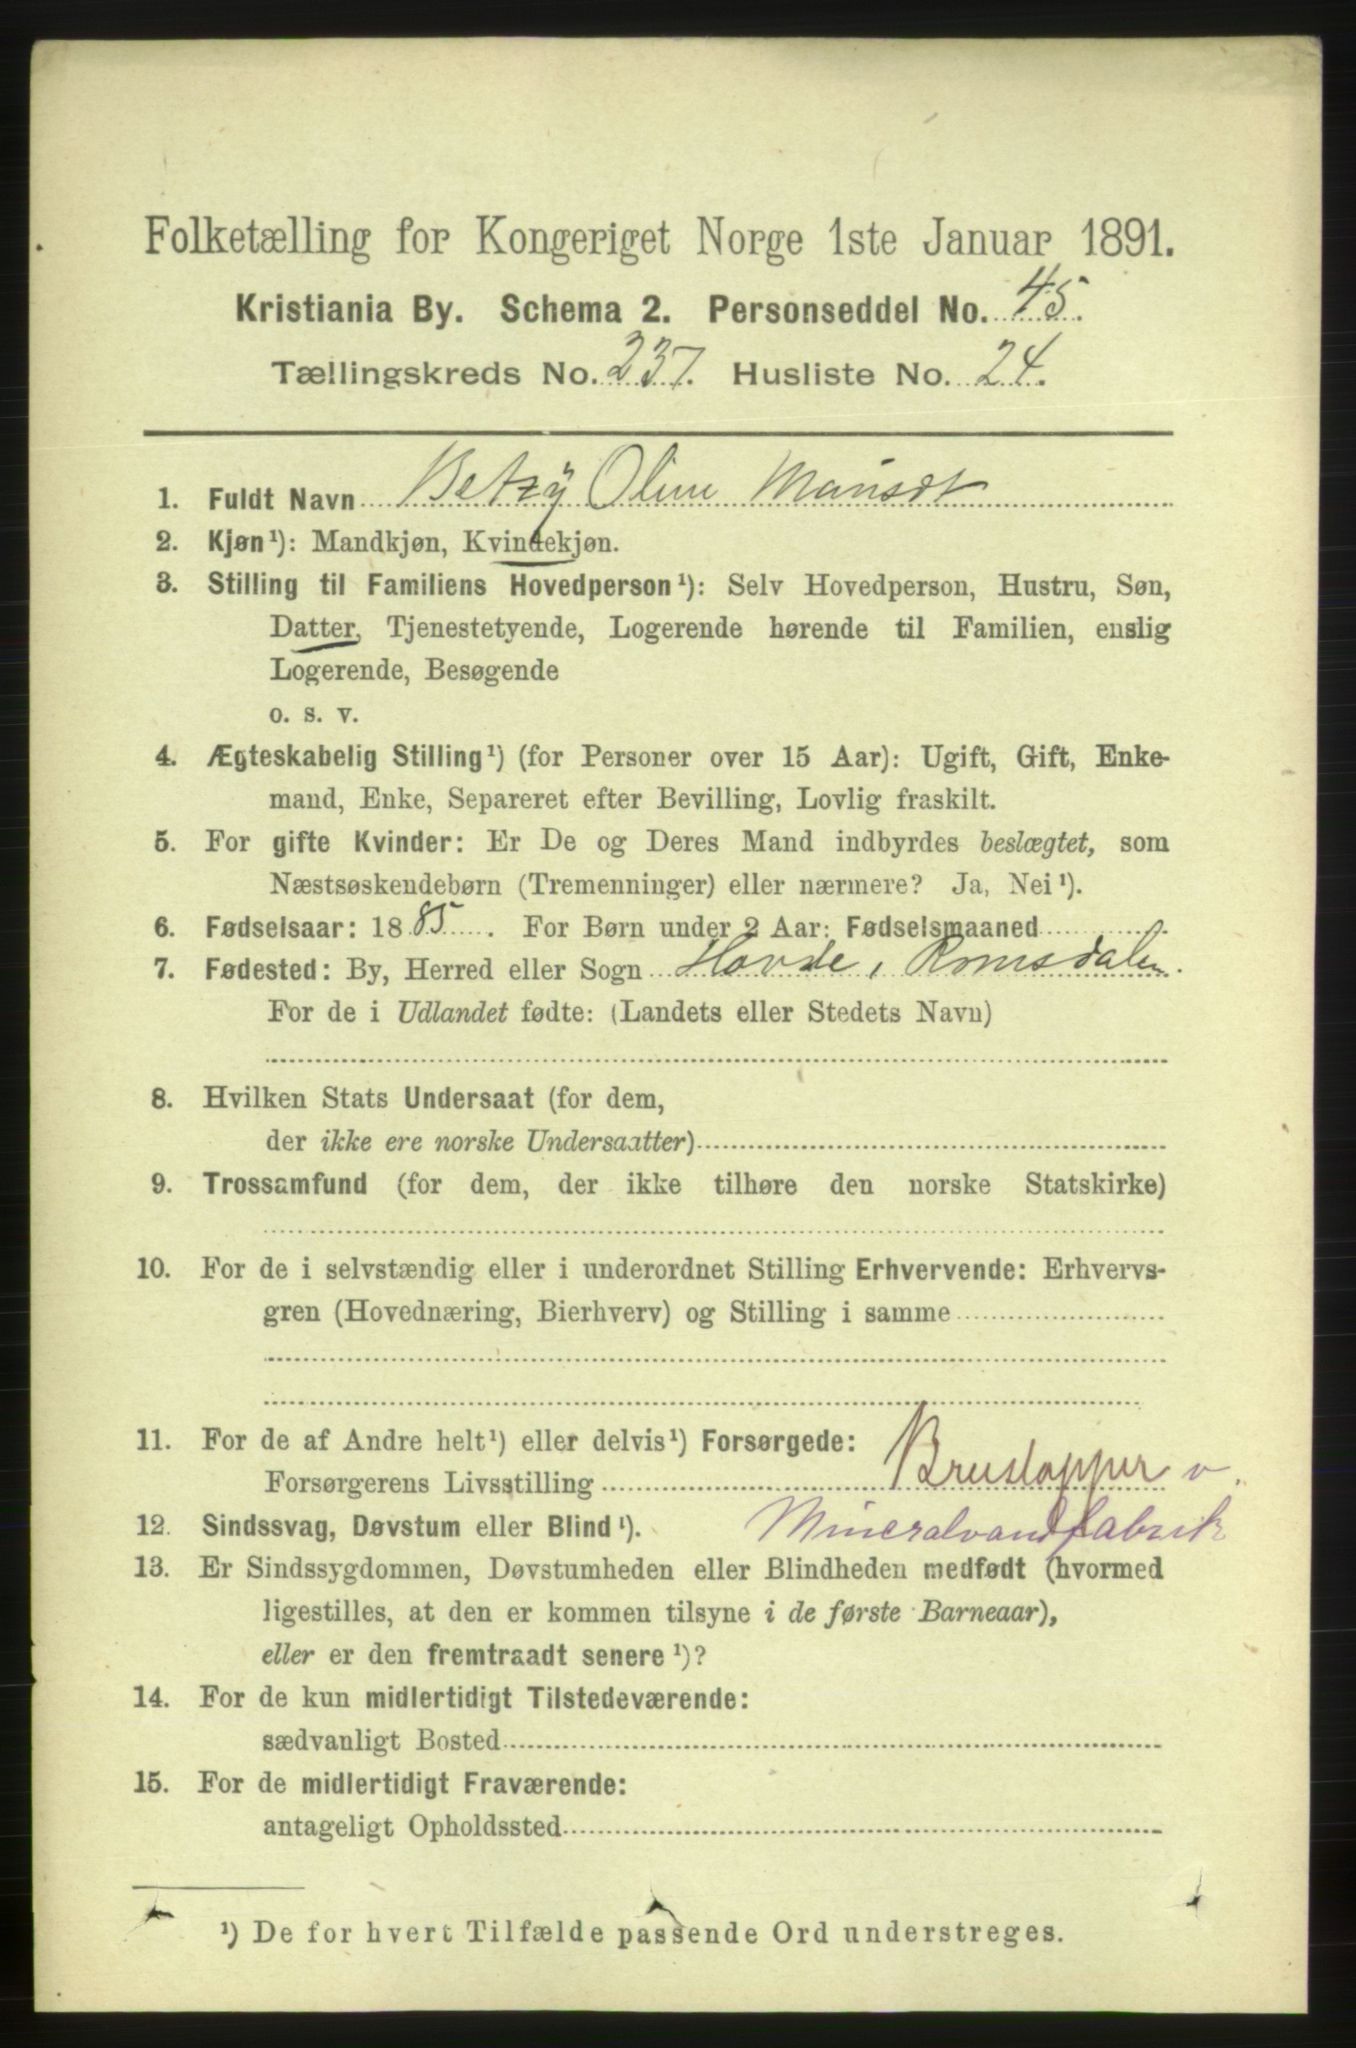 Folketælling for Kongeriget Norge 1ste Januar 1891.
Kristiania By. Schema 2. Personseddel No. 45.
Tællingskreds No. 237. Husliste No. 24.
1. Fuldt Navn Betzy Oline
2. Kjøn¹): Mandkjøn, Kvindekjøn.
3. Stilling til Familiens Hovedperson¹): Selv Hovedperson, Hustru, Søn,
Datter, Tjenestetyende, Logerende hørende til Familien, enslig
Logerende, Besøgende
o. s. v.
4. Ægteskabelig Stilling¹) (for Personer over 15 Aar): Ugift, Gift, Enke-
mand, Enke, Separeret efter Bevilling, Lovlig fraskilt.
5. For gifte Kvinder: Er De og Deres Mand indbyrdes beslægtet, som
Næstsøskendebørn (Tremenninger) eller nærmere? Ja, Nei¹).
6. Fødselsaar: 1885. For Børn under 2 Aar: Fødselsmaaned
7. Fødested: By, Herred eller Sogn Hovde, Romsdalen.
For de i Udlandet fødte: (Landets eller Stedets Navn)
8. Hvilken Stats Undersaat (for dem,
der ikke ere norske Undersaatter)
9. Trossamfund (for dem, der ikke tilhøre den norske Statskirke)
10. For de i selvstændig eller i underordnet Stilling Erhvervende: Erhvervs-
gren (Hovednæring, Bierhverv) og Stilling i samme
11. For de af Andre helt¹) eller delvis¹) Forsørgede:
Forsørgerens Livsstilling Brustapper v.
Mineralvandfabrik
12. Sindssvag, Døvstum eller Blind¹).
13. Er Sindssygdommen, Døvstumheden eller Blindheden medfødt (hvormed
ligestilles, at den er kommen tilsyne i de første Barneaar),
eller er den fremtraadt senere¹)?
14. For de kun midlertidigt Tilstedeværende:
sædvanligt Bosted
15. For de midlertidigt Fraværende:
antageligt Opholdssted
¹) De for hvert Tilfælde passende Ord understreges.